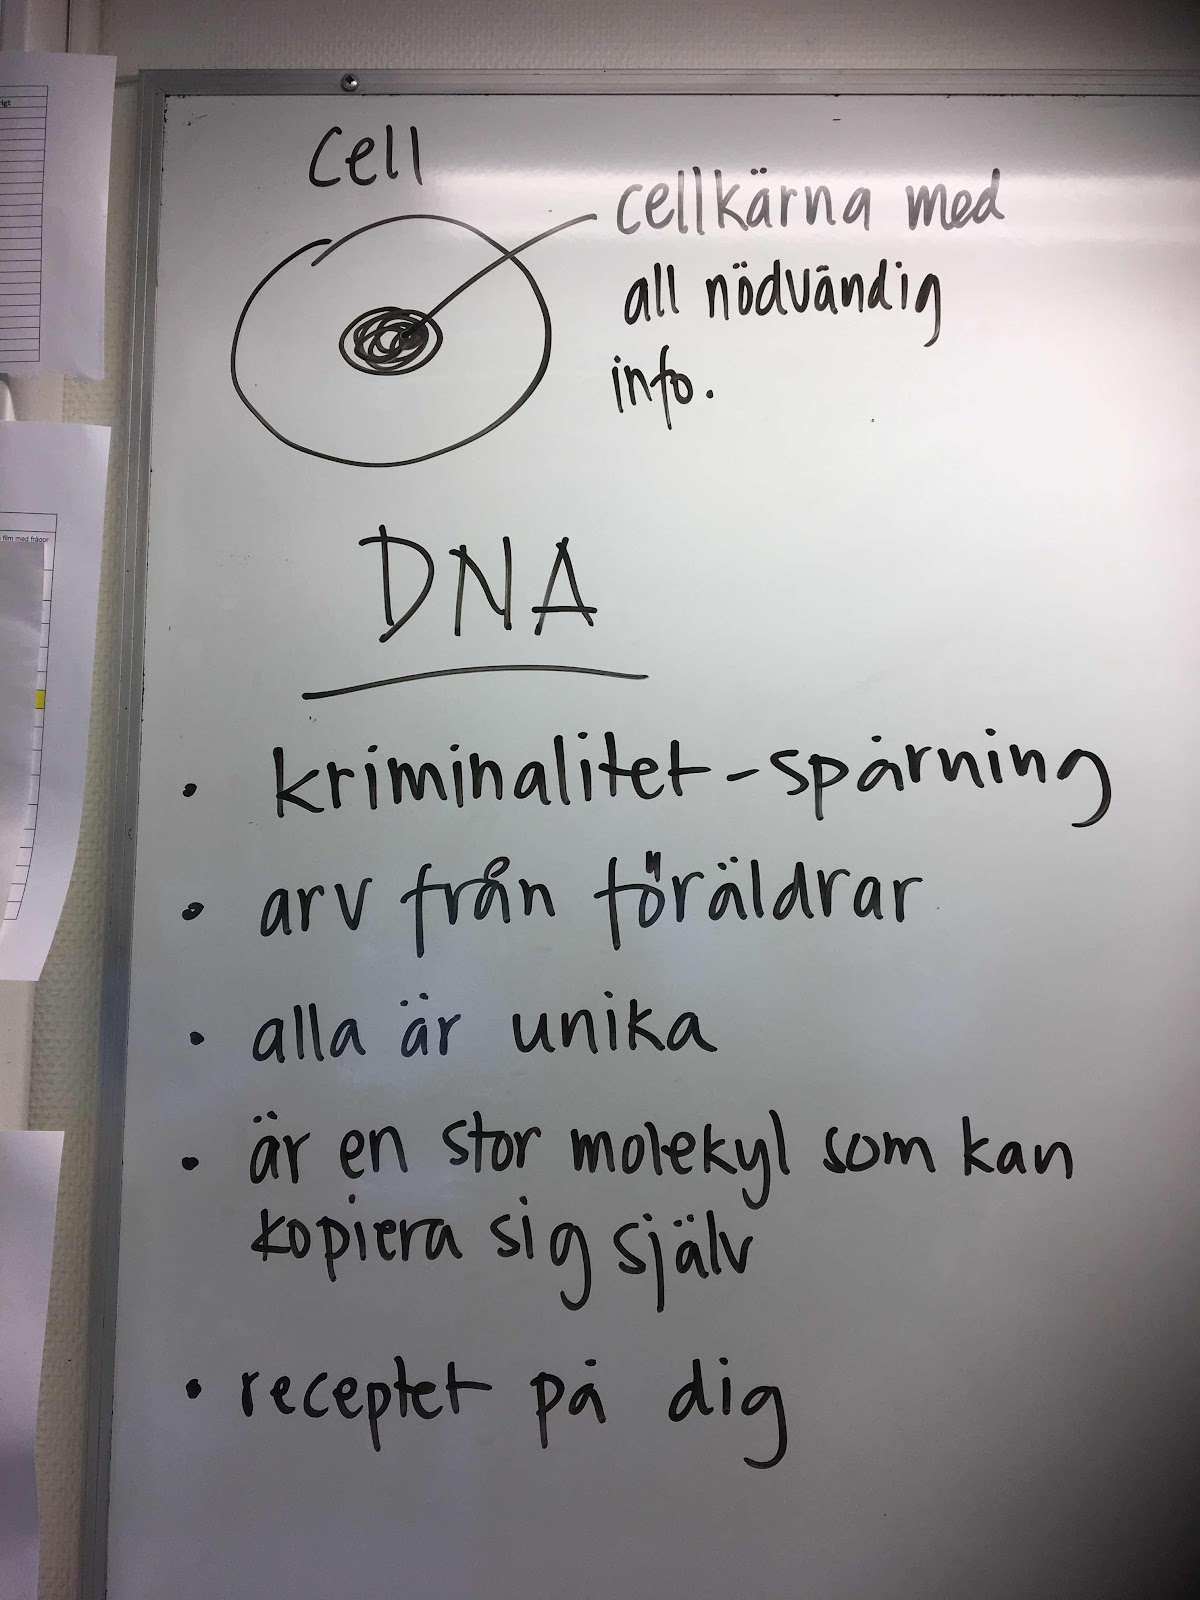 rigt
film med frågor
Cell
cellkärna med
all nödvändig
info.
DNA
• kriminalitet - spårning
• arv från föräldrar
• alla är unika
• är en stor molekyl som kan
kopiera sig själv
• receptet på dig